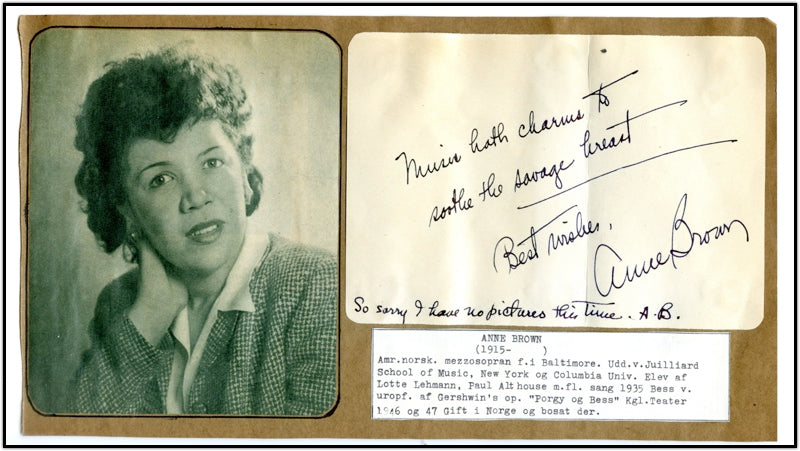 Music hath charms to
soothe the savage breast
Best wishes,
Anne Brown
So sorry I have no pictures this time. A.B.
ANNE BROWN
(1915- )
Amr.norsk. mezzosopran f.i Baltimore. Udd.v.Juilliard
School of Music, New York og Columbia Univ. Elev af
Lotte Lehmann, Paul Althouse m.fl. sang 1935 Bess v.
uropf. af Gershwin's op. "Porgy og Bess" Kgl.Teater
1946 og 47 Gift i Norge og bosat der.